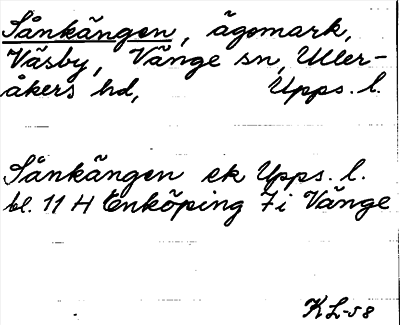 Sånkängen, ägomark,
Väsby, Vänge sn, Uller-
åkers hd, Upps. l.
Sånkängen ek Upps. l.
bl. 11 H Enköping 7i Vänge
KL-58